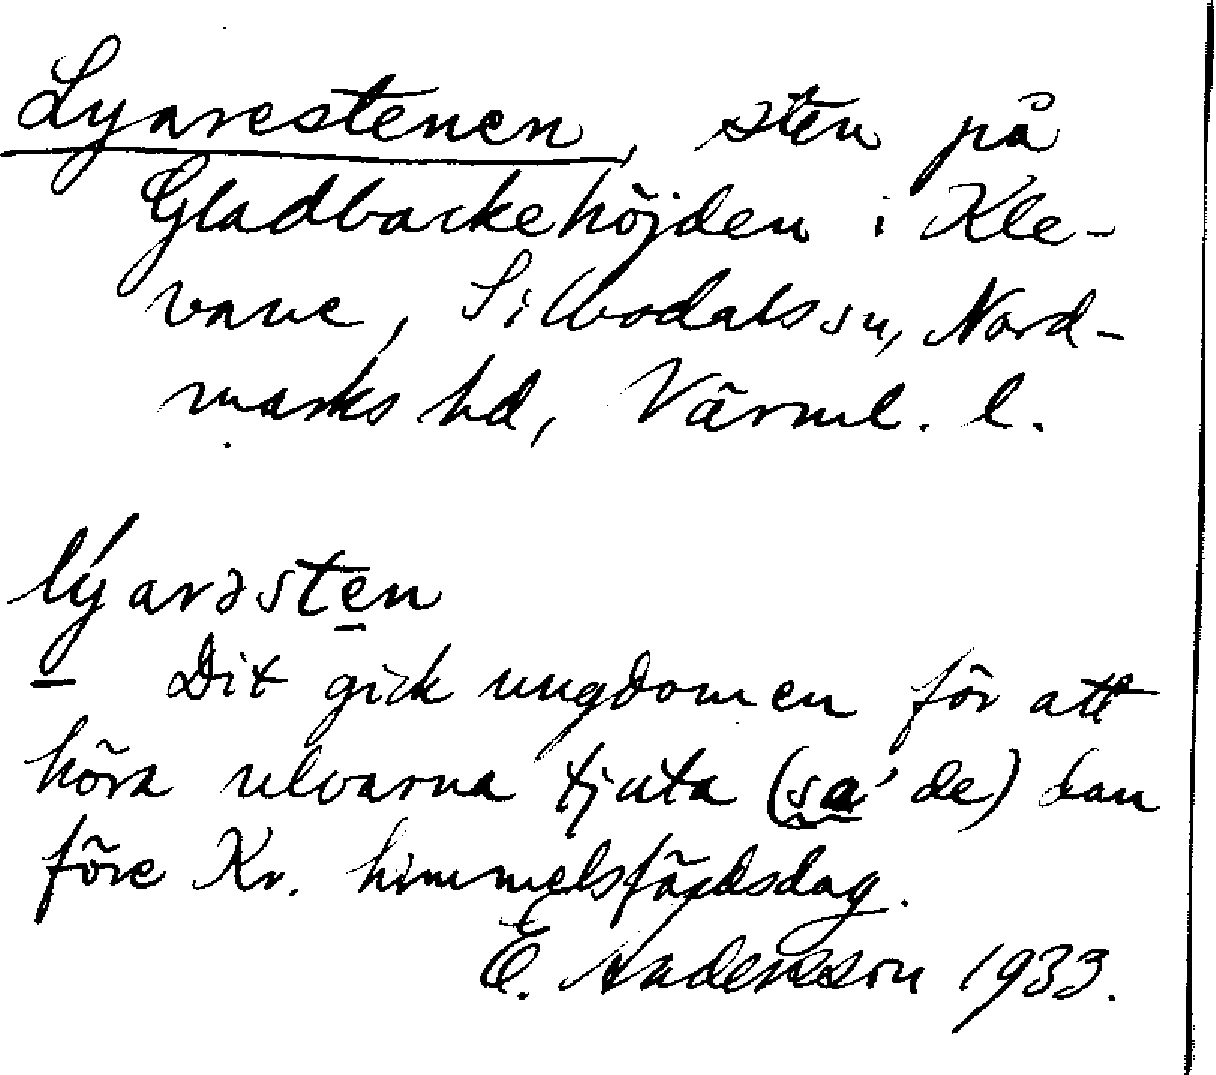 Lyarestenen, sten på
Gladbackehöjden i Kle-
vane, Silbodals sn, Nord-
marks hd, Värml. l.
lýarəsten
Dit gick ungdomen för att
höra ulvarna tjuta (sa' de) dan
före Kr. himmelsfärdsdag.
E. Andersson 1933.